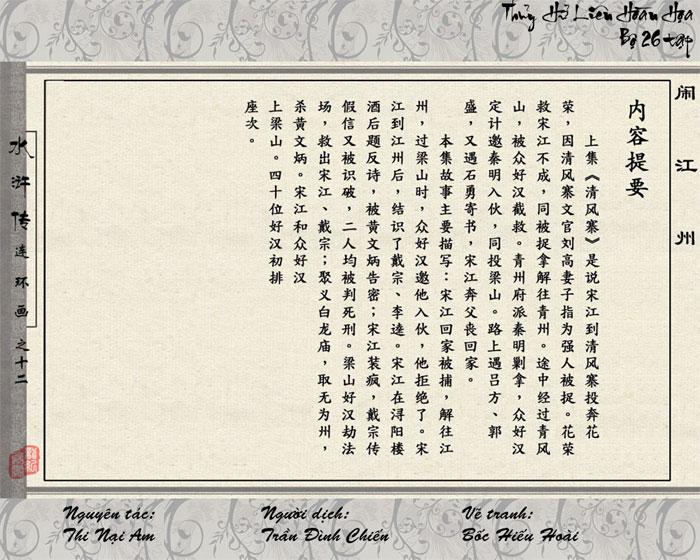 Thủy Hử Liên Hoàn Họa
Bộ 26 tập
闹江州
内容提要
上集《清风寨》是说宋江到清风寨投奔花
荣，因清风寨文官刘高妻子指为强人被捉。花荣
救宋江不成，同被捉拿解往青州。途中经过青风
山，被众好汉截救。青州府派秦明剿拿，众好汉
定计邀秦明入伙，同投梁山。路上遇吕方、郭
盛，又遇石勇寄书，宋江奔父丧回家。
本集故事主要描写：宋江回家被捕，解往江
州，过梁山时，众好汉邀他入伙，他拒绝了。宋
江到江州后，结识了戴宗、李逵。宋江在浔阳楼
酒后题反诗，被黄文炳告密；宋江装疯，戴宗传
假信又被识破，二人均被判死刑。梁山好汉劫法
场，救出宋江、戴宗；聚义白龙庙，取无为州，
杀黄文炳。宋江和众好汉
上梁山。四十位好汉初排
座次。
水浒传连环画之十二
Nguyên tác:
Thi Nại Am
Người dịch:
Trần Đình Chiến
Vẽ tranh:
Bốc Hiếu Hoài